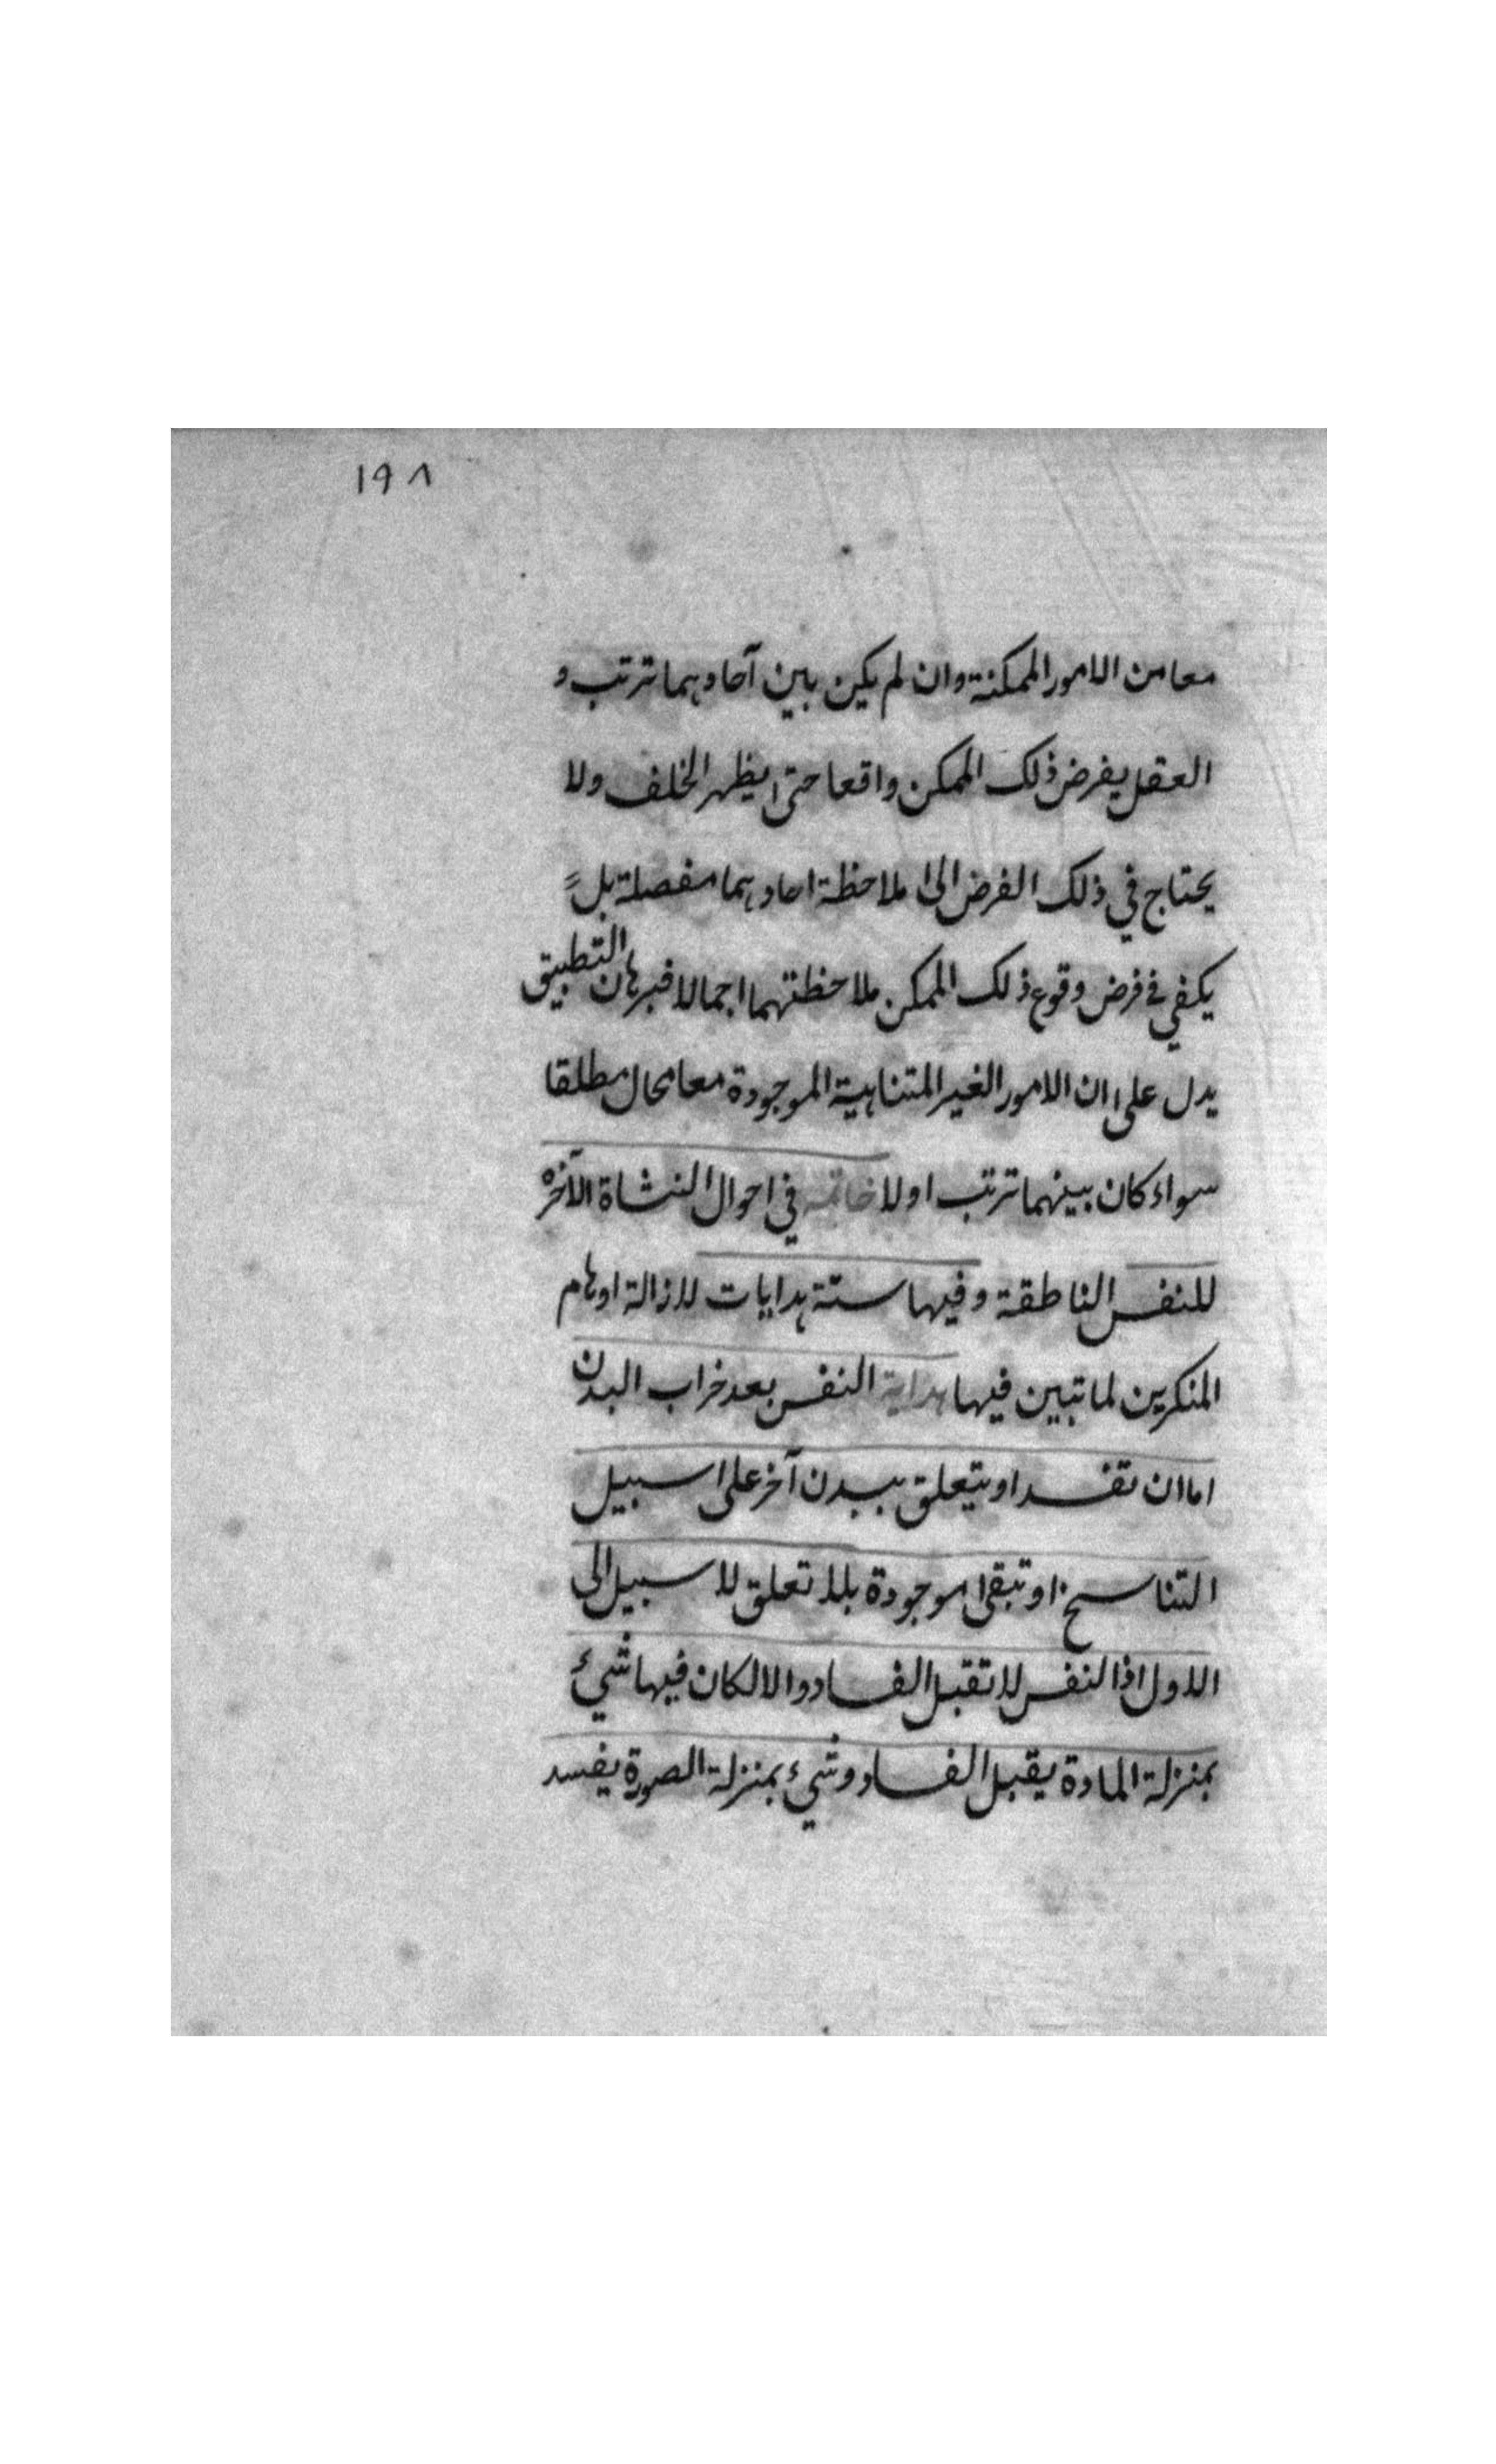 ١٩٨
معا من الامور الممكنة وان لم يكن بين آحادهما ترتب و
العقل يفرض ذلك الممكن واقعا حتى يظهر الخلف ولا
يحتاج في ذلك الفرض الى ملاحظة احادهما مفصلة بل
يكفي في فرض وقوع ذلك الممكن ملاحظتهما اجمالا فبرهان التطبيق
يدل على ان الامور الغير المتناهية الموجودة معا محال مطلقا
سواء كان بينهما ترتب اولا خاتمه في احوال النشاة الآخرة
للنفس الناطقة وفيها ستة هدايات لازالة اوهام
المنكرين لما تبين فيها هداية النفس بعد خراب البدن
اما ان تفسد او يتعلق ببدن آخر على سبيل
التناسخ او تبقى موجودة بلا تعلق لا سبيل الى
الاول اذ النفس لا تقبل الفساد والا لكان فيها شيء
بمنزلة المادة يقبل الفساد وشيء بمنزلة الصورة يفسد